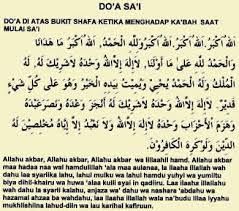 DO'A SA'I
DO'A DI ATAS BUKIT SHAFA KETIKA MENGHADAP KA'BAH SAAT
MULAI SA'I
اَللهُ اَكْبَرُ. اَللهُ اَكْبَرُ. اَللهُ اَكْبَرُ وَلِلّٰهِ الْحَمْدُ, اَللهُ اَكْبَرُ مَا هَدَانَا
وَالْحَمْدُ لِلّٰهِ عَلَى مَا اَوْلَانَا, لَا اِلٰهَ اِلَّا اللهُ وَحْدَهُ لَا شَرِيْكَ لَهُ, لَهُ
الْمُلْكُ وَلَهُ الْحَمْدُ يُحْيِيْ وَيُمِيْتُ بِيَدِهِ الْخَيْرُ وَهُوَ عَلَى كُلِّ شَيْءٍ
قَدِيْرٌ. لَا اِلٰهَ اِلَّا اللهُ وَحْدَهُ لَا شَرِيْكَ لَهُ اَنْجَزَ وَعْدَهُ وَنَصَرَ عَبْدَهُ
وَهَزَمَ الْاَحْزَابَ وَحْدَهُ لَا اِلٰهَ اِلَّا اللهُ وَلَا نَعْبُدُ اِلَّا اِيَّاهُ مُخْلِصِيْنَ لَهُ
الدِّيْنَ وَلَوْ كَرِهَ الْكَافِرُوْنَ
Allahu akbar, Allahu akbar, Allahu akbar wa lillaahil hamd. Allahu akbar
maa hadaa naa wal hamdulillah 'ala maa aulaana, la ilaaha illallah wah
dahu laa syariika lahu, lahul mulku wa lahul hamdu yuhyi wa yumiitu
biya dihil-khairu wa huwa 'alaa kulli syai in qadiiru. La ilaaha illallahu
wah dahu la syarii kalahu, anjaza wa' dahu wa nashara 'abdahu wa
hazamal ahzaba wa wahdahu, laa ilaaha illallah wala na'budu illaa iyyahu
mukhlishiina lahud-diin wa lau karihal kafiruun.